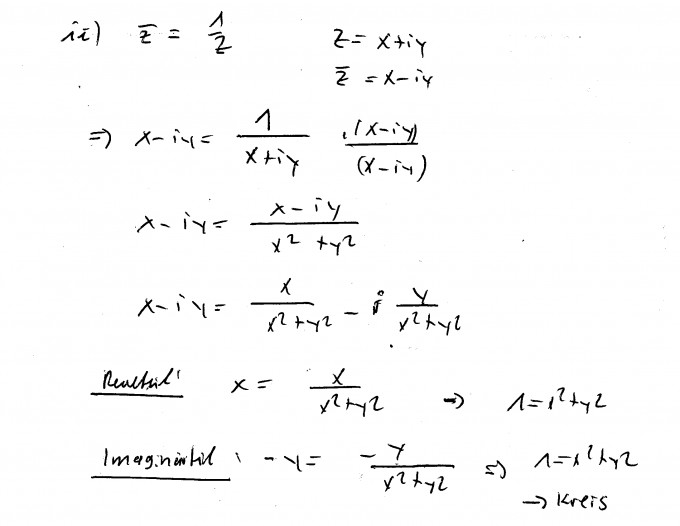 ii) z̄ = 1/z    z = x+iy
z̄ = x-iy
=> x-iy = 1/(x+iy) · (x-iy)/(x-iy)
x-iy = (x-iy)/(x²+y²)
x-iy = x/(x²+y²) - i y/(x²+y²)
Realteil: x = x/(x²+y²) -> 1=x²+y²
Imaginärteil: -y = -y/(x²+y²) => 1=x²+y²
-> Kreis